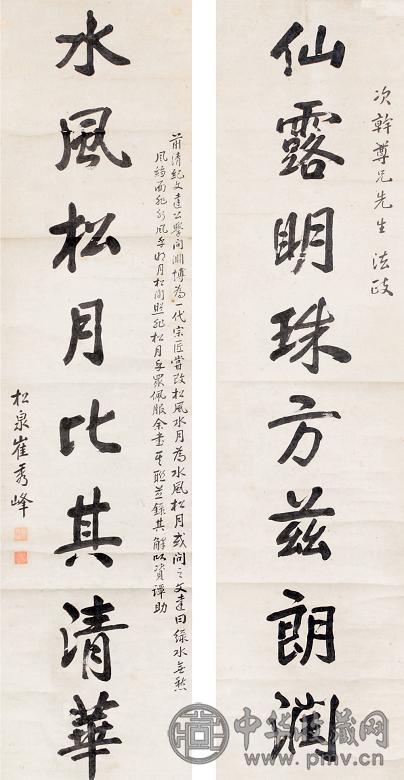 次幹尊兄先生 法政
仙露明珠方茲朗潤
前清紀文達公學問淵博為一代宗匠嘗改松風水月為水風松月或問之文達曰綠水無愁
風縐面非水風乎明月松間照非松月乎眾佩服余書其聯並錄其解以資譚助
水風松月比其清華
松泉崔秀峰
中华收藏网
www.pmv.cn